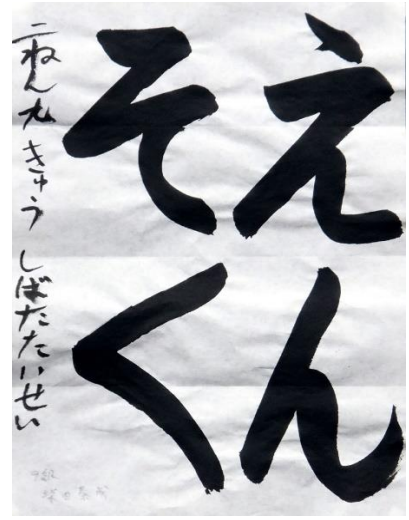 えん
そく
二ねん九きゅう しばたたいせい
9級
柴田